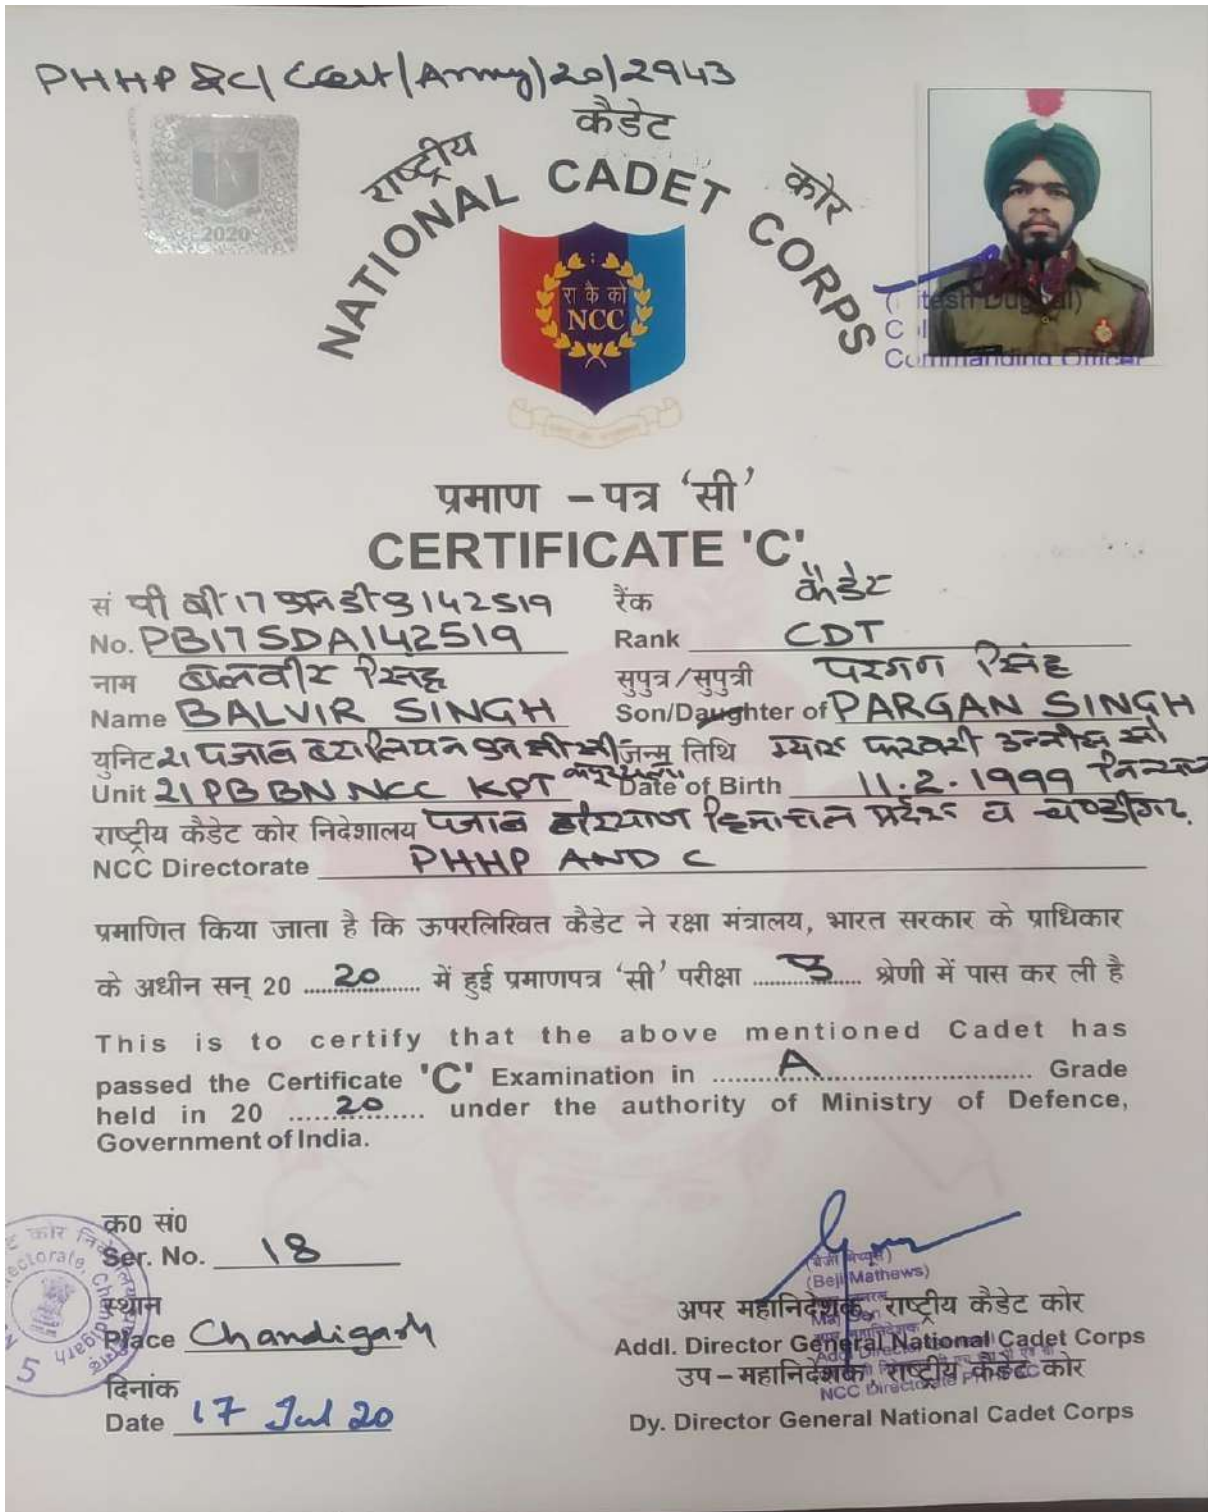 PHHP &C/CCert/Army/20/2943
2020
राष्ट्रीय कैडेट कोर
NATIONAL CADET CORPS
रा कै को
NCC
(itesh Duggal)
Col
Commanding Officer
प्रमाण – पत्र ‘सी’
CERTIFICATE 'C'
सं पी बी 17 एस डी ए 142519 रैंक कैडेट
No. PB17SDA142519 Rank CDT
नाम बलवीर सिंह सुपुत्र/सुपुत्री परगन सिंह
Name BALVIR SINGH Son/Daughter of PARGAN SINGH
युनिट 21 पंजाब बटालियन एन सी सी जन्म तिथि ग्यारह फरवरी उन्नीस सौ
Unit 21 PB BN NCC KPT Date of Birth 11.2.1999
राष्ट्रीय कैडेट कोर निदेशालय पंजाब हरियाणा हिमाचल प्रदेश व चण्डीगढ़
NCC Directorate PHHP AND C
प्रमाणित किया जाता है कि ऊपरलिखित कैडेट ने रक्षा मंत्रालय, भारत सरकार के प्राधिकार
के अधीन सन् 20 ....20.... में हुई प्रमाणपत्र ‘सी’ परीक्षा ....ए.... श्रेणी में पास कर ली है
This is to certify that the above mentioned Cadet has
passed the Certificate 'C' Examination in ....A.... Grade
held in 20 ....20.... under the authority of Ministry of Defence,
Government of India.
क्र0 सं0
Ser. No. 18
स्थान
Place Chandigarh
दिनांक
Date 17 Jul 20
5
(Beji Mathews)
Maj Gen
अपर महानिदेशक, राष्ट्रीय कैडेट कोर
Addl. Director General National Cadet Corps
उप – महानिदेशक, राष्ट्रीय कैडेट कोर
NCC Directorate PHHP&C
Dy. Director General National Cadet Corps